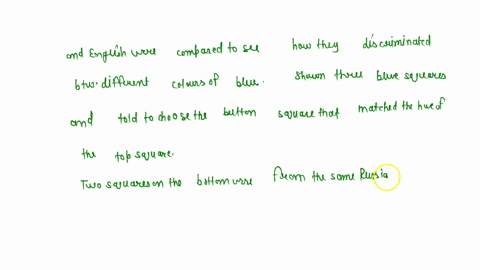 and English were compared to see how they discriminated
btw. different colours of blue. Shown three blue squares
and told to choose the button square that matched the hue of
the top square.
Two squares on the bottom were from the same Russia